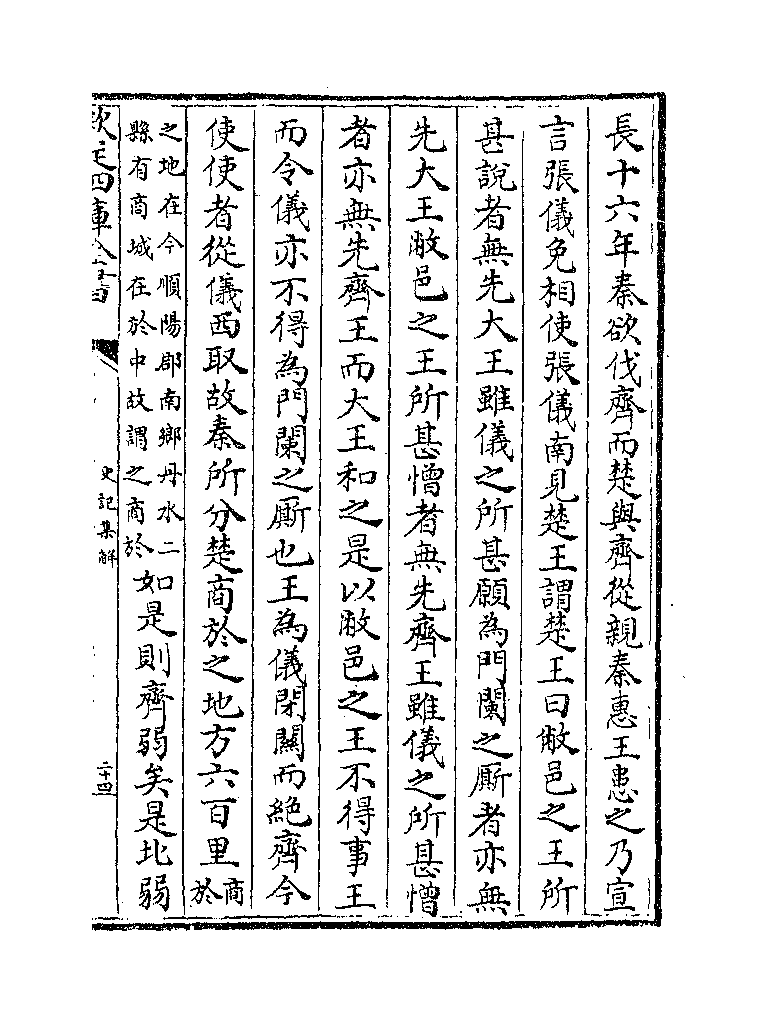 長十六年秦欲伐齊而楚與齊從親秦惠王患之乃宣
言張儀免相使張儀南見楚王謂楚王曰敝邑之王所
甚說者無先大王雖儀之所甚願為門闌之厮者亦無
先大王敝邑之王所甚憎者無先齊王雖儀之所甚憎
者亦無先齊王而大王和之是以敝邑之王不得事王
而令儀亦不得為門闌之厮也王為儀閉關而絶齊今
使使者從儀西取故秦所分楚商於之地方六百里商於
之地在今順陽郡南鄉丹水二縣有商城在於中故謂之商於如是則齊弱矣是北弱
欽定四庫全書
史記集解
二十四